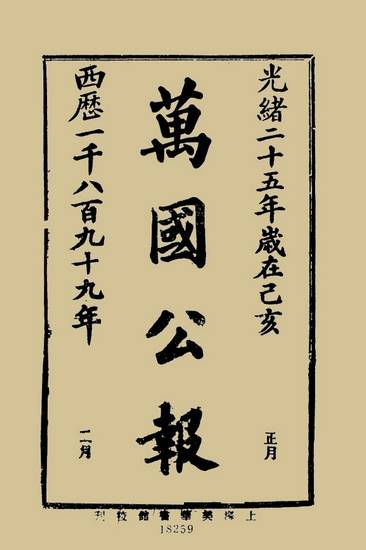 光緒二十五年歲在己亥
正月
萬國公報
西歷一千八百九十九年
二月
上海美華書館校刊
18259